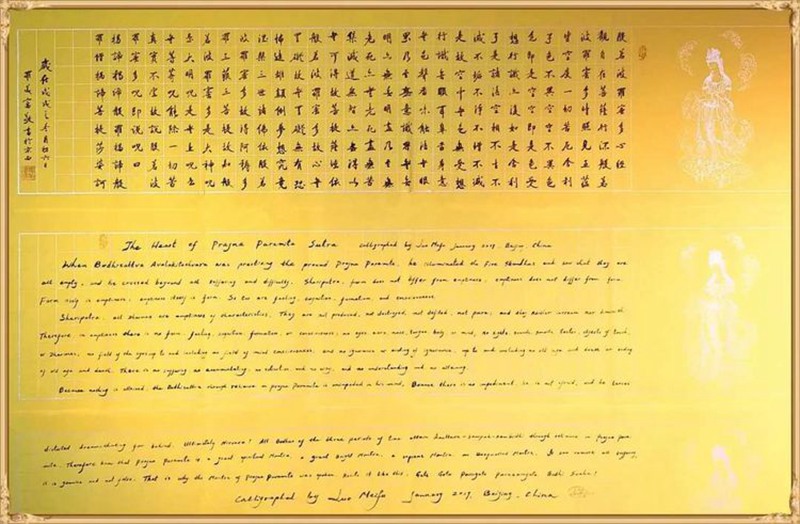 般若波羅蜜多心經
觀自在菩薩行深般若
波羅蜜多時照見五蘊
皆空度一切苦厄舍利
子色不異空空不異色
色即是空空即是色受
想行識亦復如是舍利
子是諸法空相不生不
滅不垢不淨不增不減
是故空中无色无受想
行識无眼耳鼻舌身意
无色聲香味觸法无眼
界乃至无意識界无无
明亦无无明盡乃至无
老死亦无老死盡无苦
集滅道无智亦无得以
无所得故菩提薩埵依
般若波羅蜜多故心无
罣礙无罣礙故无有恐
怖遠離顛倒夢想究竟
涅槃三世諸佛依般若
波羅蜜多故得阿耨多
羅三藐三菩提故知般
若波羅蜜多是大神咒
是大明咒是无上咒是
无等等咒能除一切苦
真實不虛故說般若波
羅蜜多咒即說咒曰
揭諦揭諦般羅揭諦般
羅僧揭諦菩提莎婆訶
歲在戊戌之冬月初六日
羅美富敬書於京西
The Heart of Prajna Paramita Sutra Calligraphed by Luo Meifu January 2019, Beijing, China
When Bodhisattva Avalokiteshvara was practicing the profound Prajna Paramita, he illuminated the Five Skandhas and saw that they are
all empty, and he crossed beyond all suffering and difficulty. Shariputra, form does not differ from emptiness; emptiness does not differ from form.
Form itself is emptiness; emptiness itself is form. So too are feeling, cognition, formation, and consciousness.
Shariputra, all dharmas are emptiness of characteristics. They are not produced, not destroyed, not defiled, not pure; and they neither increase nor diminish.
Therefore, in emptiness there is no form, feeling, cognition, formation, or consciousness; no eyes, ears, nose, tongue, body, or mind; no sights, sounds, smells, tastes, objects of touch,
or Dharmas; no field of the eyes up to and including no field of mind consciousness; and no ignorance or ending of ignorance, up to and including no old age and death or ending
of old age and death. There is no suffering, no accumulating, no extinction, and no way, and no understanding and no attaining.
Because nothing is attained, the Bodhisattva through reliance on prajna Paramita is unimpeded in his mind. Because there is no impediment, he is not afraid, and he leaves
distorted dream-thinking far behind. Ultimately Nirvana! All Buddhas of the three periods of time attain through reliance on prajna para-
mita. Therefore know that Prajna Paramita is a great spiritual Mantra, a great bright Mantra, a supreme Mantra, an unequalled Mantra. It can remove all suffering;
it is genuine and not false. That is why the Mantra of Prajna Paramita was spoken. Recite it like this: Gate Gate Paragate Parasamgate Bodhi Svaha!
Calligraphed by Luo Meifu January 2019, Beijing, China